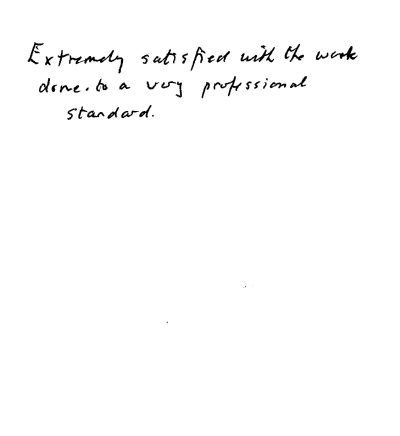 Extremely satisfied with the work
done. to a very professional
standard.